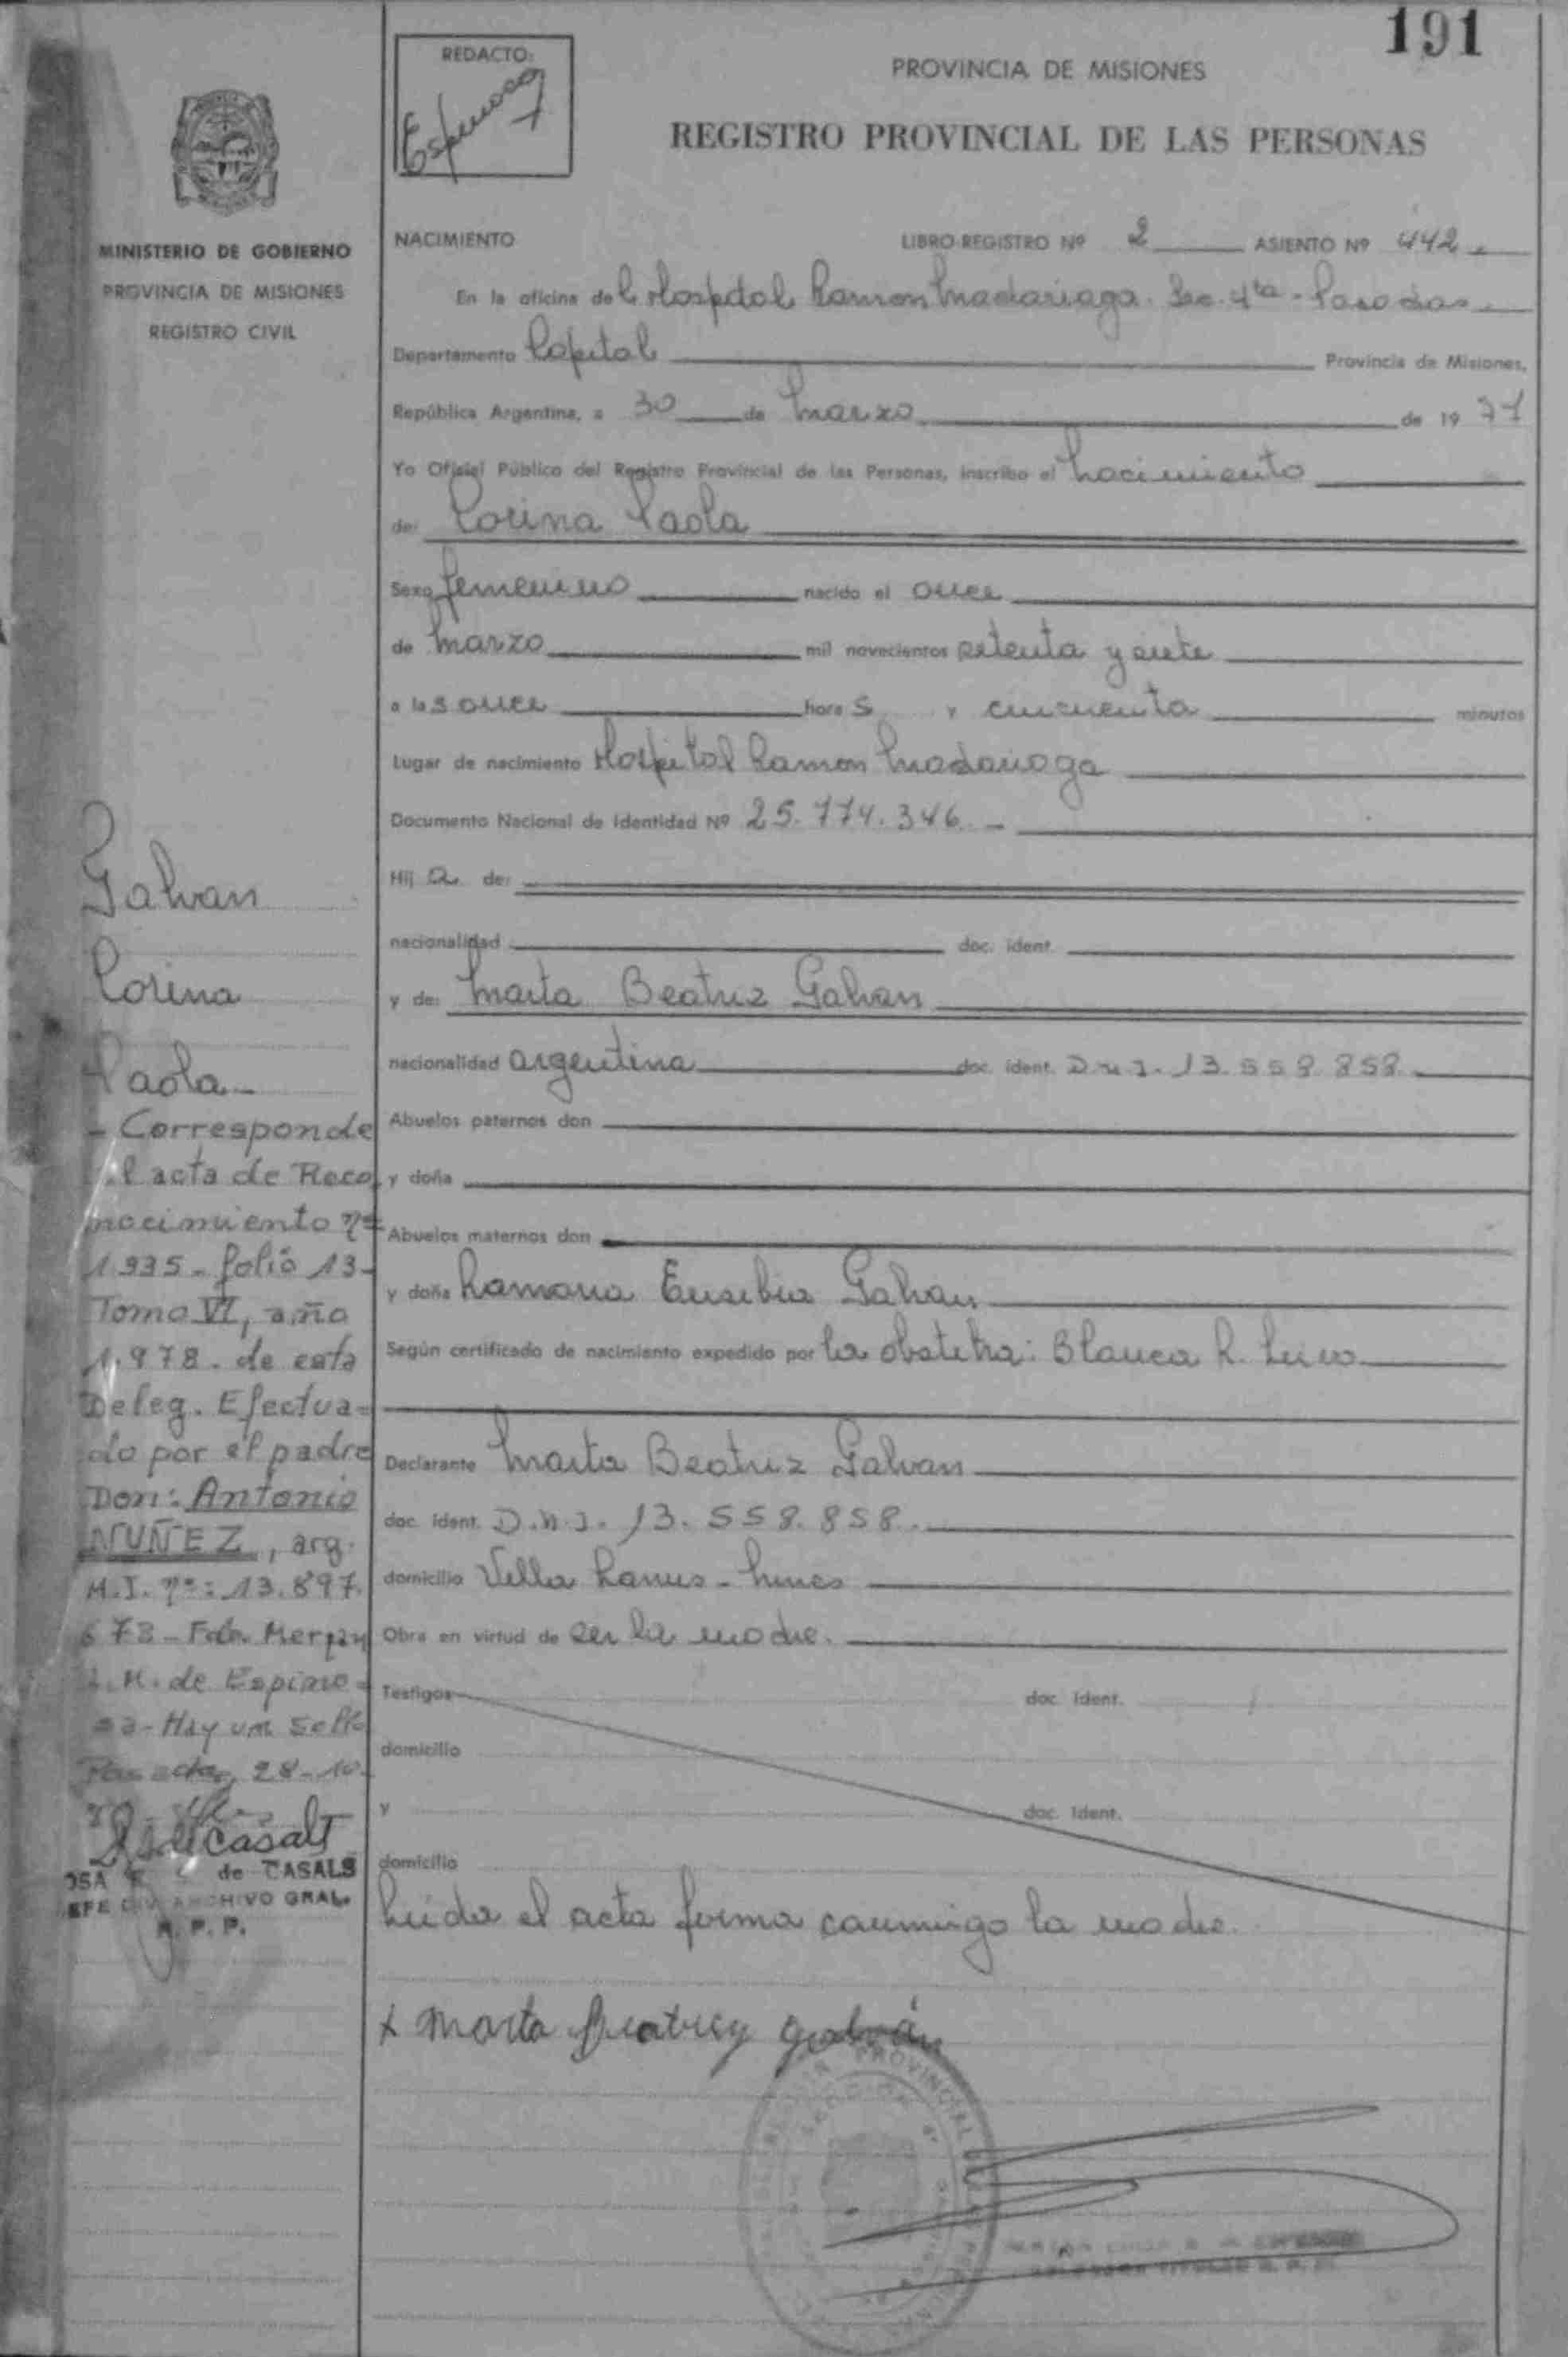 191
REDACTO:
Espinosa
PROVINCIA DE MISIONES
REGISTRO PROVINCIAL DE LAS PERSONAS
MINISTERIO DE GOBIERNO
PROVINCIA DE MISIONES
REGISTRO CIVIL
NACIMIENTO LIBRO-REGISTRO Nº 2 ASIENTO Nº 442.
En la oficina del Hospital Ramon Madariaga. Sec. 4ta - Posadas.
Departamento Capital Provincia de Misiones,
República Argentina, a 30 de Marzo de 1977
Yo Oficial Público del Registro Provincial de las Personas, inscribo el Nacimiento
de: Corina Paola
Sexo femenino nacido el once
de Marzo mil novecientos setenta y siete
a las once horas y cincuenta minutos
Lugar de nacimiento Hospital Ramon Madariaga
Documento Nacional de Identidad Nº 25.774.346. -
Hija de:
nacionalidad doc. ident.
y de: Marta Beatriz Galvan
nacionalidad argentina doc. ident. D.N.I. 13.558.858.
Abuelos paternos don
y doña
Abuelos maternos don
y doña Ramona Eusebia Galvan
Según certificado de nacimiento expedido por la obstetra: Blanca R.
Declarante Marta Beatriz Galvan
doc. ident. D.N.I. 13.558.858.
domicilio Villa Lanus -
Obra en virtud de ser la madre.
Testigos doc. ident.
domicilio
y doc. ident.
domicilio
Leida el acta firma conmigo la madre.
x Marta Beatriz Galván
Galvan
Corina
Paola-
- Corresponde
al acta de Reco
nocimiento nº
1935- folio 13-
Tomo VI, año
1.978. de esta
Deleg. Efectua-
do por el padre
Don: Antonio
NUÑEZ, arg.
M.I. nº: 13.897.
673- Fdo.
L.M. de Espino-
sa- Hay un sello
Posadas, 28-10-
de CASALS
ARCHIVO GRAL.
R. P. P.